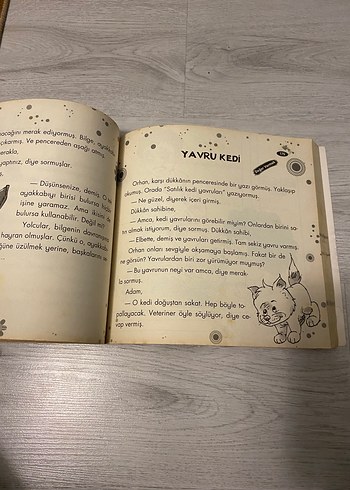 acağını merak ediyormuş. Bilge, ayakka
çıkarmış. Ve pencereden aşağı atmış.
merakla,
yaptınız, diye sormuşlar.
— Düşünsenize, demiş. O
ayakkabıyı birisi bulursa
işine yaramaz. Ama ikisini
bulursa kullanabilir. Değil mi?
Yolcular, bilgenin davranışına
hayran olmuşlar. Çünkü o, ayakkabı
ğüne üzülmek yerine, başkalarını
YAVRU KEDİ
Orhan, karşı dükkânın penceresinde bir yazı görmüş. Yaklaşıp
okumuş. Orada "Satılık kedi yavruları" yazıyormuş.
— Ne güzel, diyerek içeri girmiş.
Dükkân sahibine,
— Amca, kedi yavrularını görebilir miyim? Onlardan birini sa-
tın almak istiyorum, demiş. Dükkân sahibi,
— Elbette, demiş ve yavruları getirmiş. Tam sekiz yavru varmış.
Orhan onları sevgiyle okşamaya başlamış. Fakat bir de
ne görsün? Yavrulardan biri zor yürümüyor muymuş?
— Bu yavrunun neyi var amca, diye merak-
la sormuş.
Adam,
— O kedi doğuştan sakat. Hep böyle to-
pallayacak. Veteriner öyle söylüyor, diye ce-
vap vermiş.